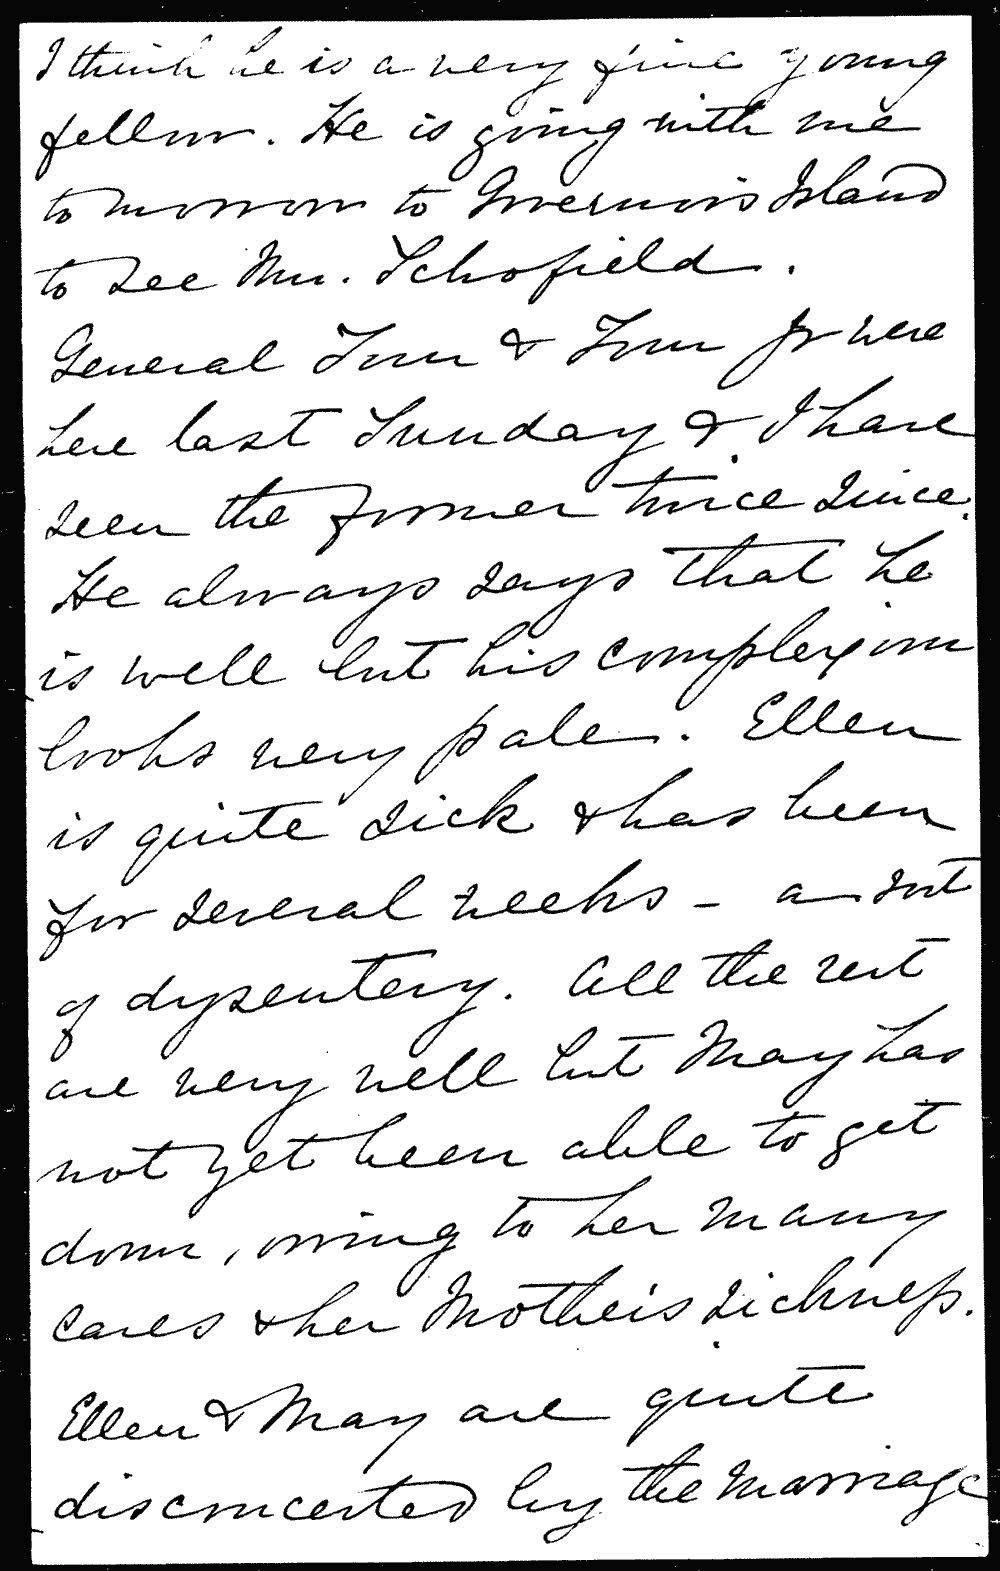 I think he is a very fine young
fellow. He is going with me
tomorrow to Governor's Island
to see Mr. Schofield.
General Tom & Tom Jr were
here last Sunday & I have
seen the former twice since.
He always says that he
is well but his complexion
looks very pale. Ellen
is quite sick & has been
for several weeks - a sort
of dysentery. All the rest
are very well but May has
not yet been able to get
down, owing to her many
cares & her Mother's sickness.
Ellen & May are quite
disconcerted by the marriage